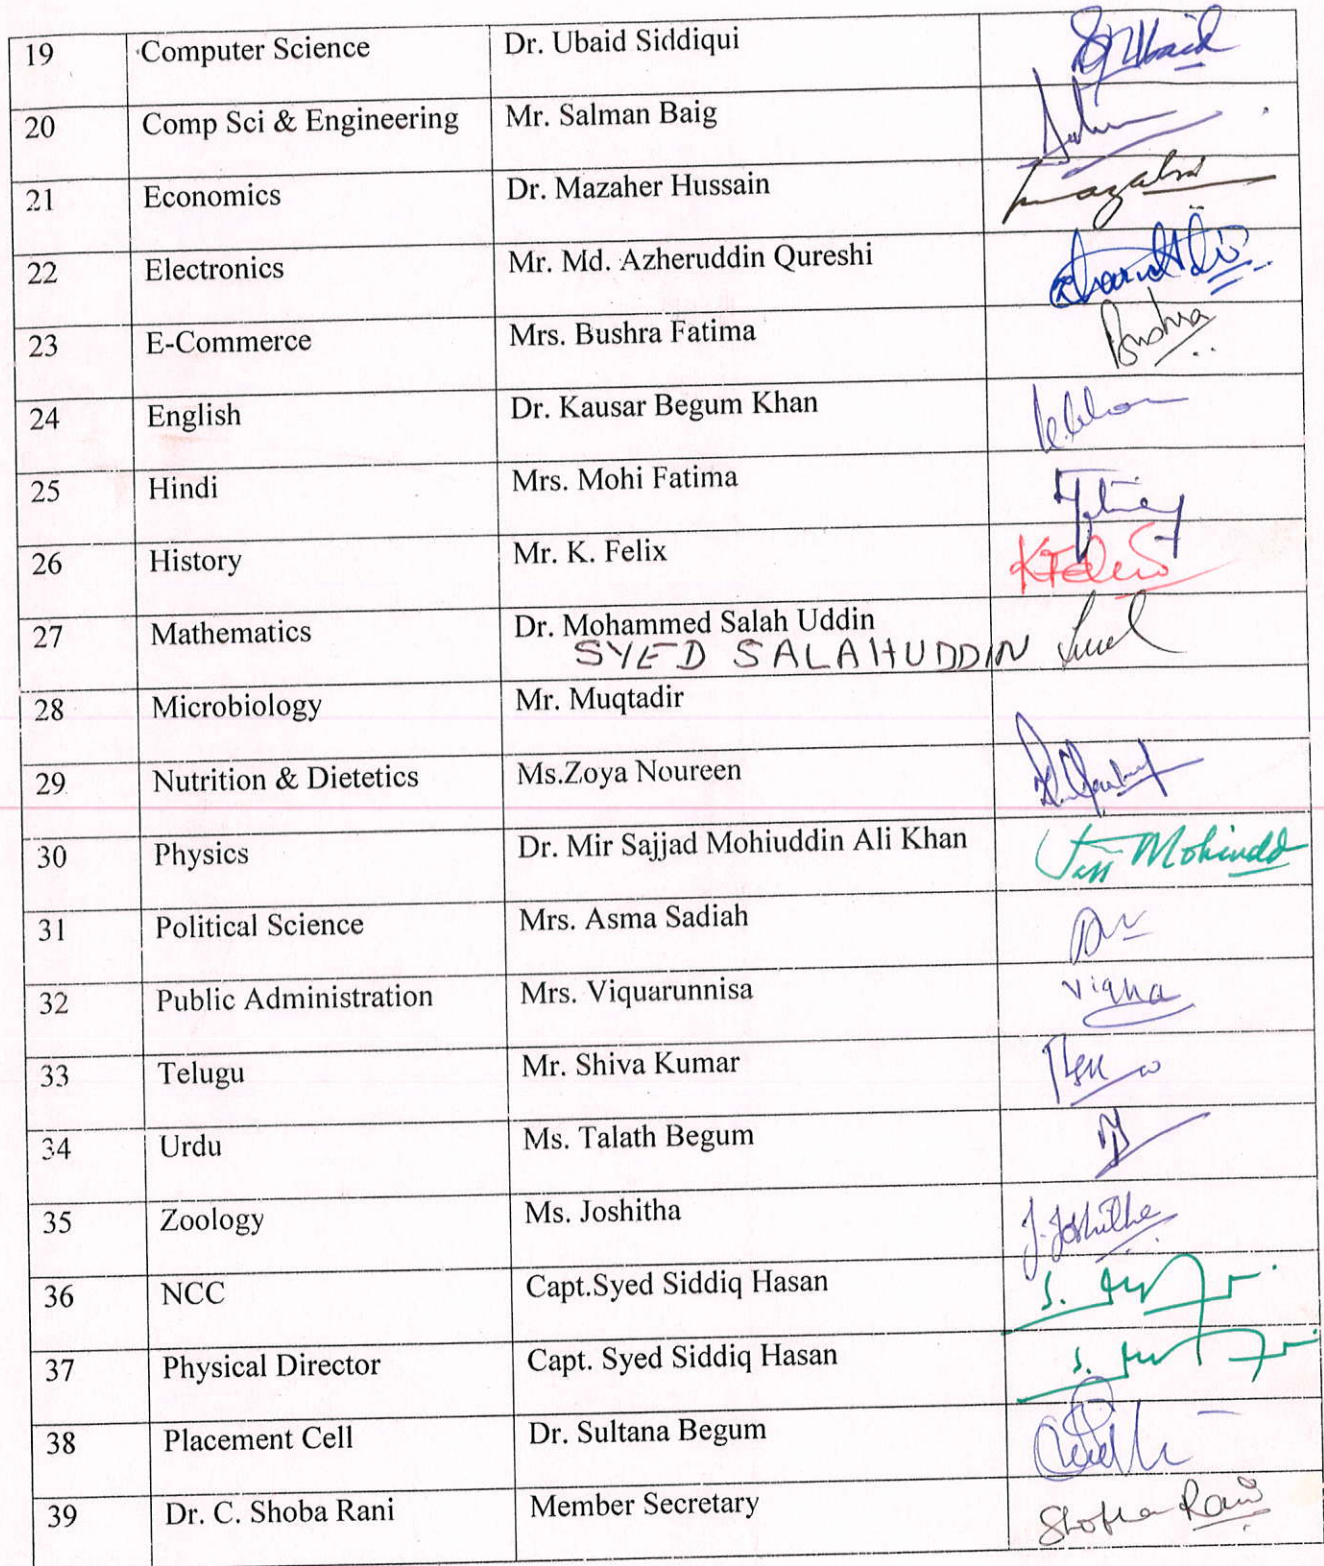 19 Computer Science Dr. Ubaid Siddiqui Ubaid
20 Comp Sci & Engineering Mr. Salman Baig
21 Economics Dr. Mazaher Hussain
22 Electronics Mr. Md. Azheruddin Qureshi
23 E-Commerce Mrs. Bushra Fatima Bushra
24 English Dr. Kausar Begum Khan
25 Hindi Mrs. Mohi Fatima
26 History Mr. K. Felix
27 Mathematics Dr. Mohammed Salah Uddin
SYED SALAHUDDIN
28 Microbiology Mr. Muqtadir
29 Nutrition & Dietetics Ms.Zoya Noureen
30 Physics Dr. Mir Sajjad Mohiuddin Ali Khan
31 Political Science Mrs. Asma Sadiah
32 Public Administration Mrs. Viquarunnisa
33 Telugu Mr. Shiva Kumar
34 Urdu Ms. Talath Begum
35 Zoology Ms. Joshitha J. Joshitha
36 NCC Capt.Syed Siddiq Hasan
37 Physical Director Capt. Syed Siddiq Hasan
38 Placement Cell Dr. Sultana Begum
39 Dr. C. Shoba Rani Member Secretary Shobha Rani